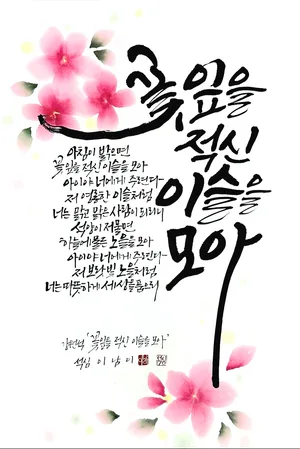 꽃잎을
적신
이슬을
모아
아침이 밝으면
꽃잎을 적신 이슬을 모아
아이야 너에게 주련다
저 영롱한 이슬처럼
너는 맑고 밝은 사람이 되리니
석양이 저물면
하늘에 물든 노을을 모아
아이야 너에게 주련다
저 보랏빛 노을처럼
너는 따뜻하게 세상을 품으리
'꽃잎을 적신 이슬을 모아'
석심 이남미